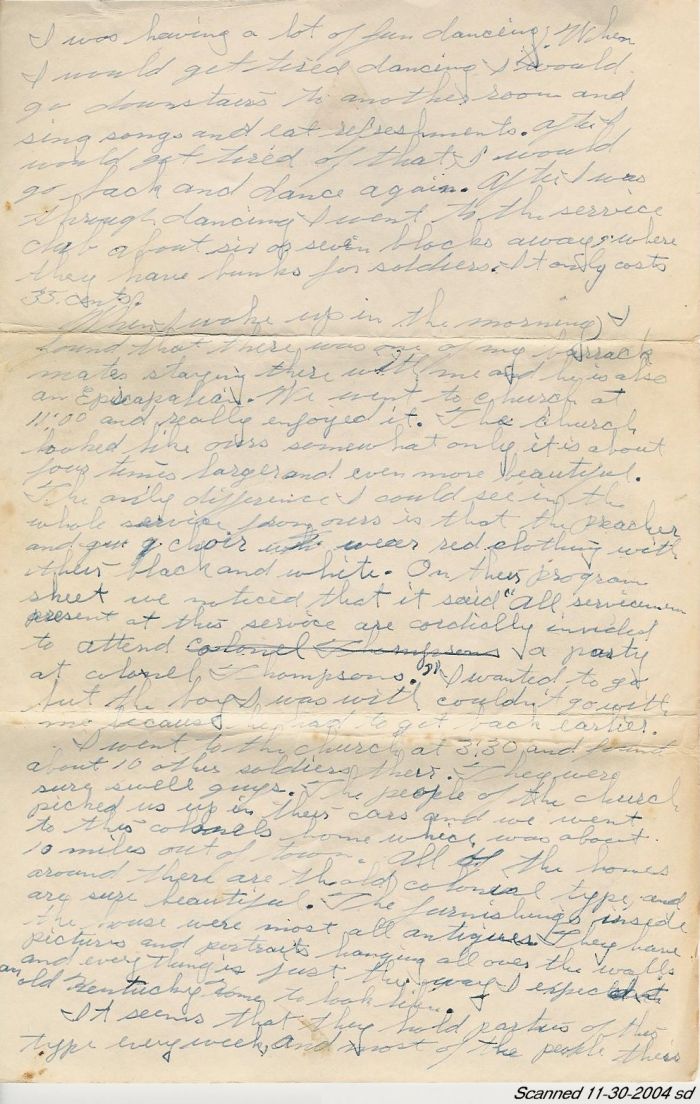 I was having a lot of fun dancing. When
I would get tired dancing I would
go downstairs to another room and
sing songs and eat refreshments. After I
would get tired of that I would
go back and dance again. After I was
through dancing I went to the service
club about six or seven blocks away, where
they have bunks for soldiers. It only costs
35 cents.
When I woke up in the morning, I
found that there was one of my barrack
mates staying there with me and he is also
an Episcapalian. We went to church at
11:00 and really enjoyed it. The church
looked like ours somewhat only it is about
four times larger and even more beautiful.
The only difference I could see in the
whole service from ours is that the preacher
and choir wear red clothing with
their black and white. On their program
sheet we noticed that it said "All servicemen
present at this service are cordially invited
to attend colonel Thompsons a party
at colonel Thompsons." I wanted to go
but the boy I was with couldn't go with
me because he had to get back earlier.
I went to the church at 3:30 and found
about 10 other soldiers there. They were
sure swell guys. The people of the church
picked us up in their cars and we went
to this colonels home which was about
10 miles out of town. All of the homes
around there are the old colonial type and
are sure beautiful. The furnishings inside
the house were most all antiques. They have
pictures and portraits hanging all over the walls
and everything is just the way I expected
an old Kentucky home to look like.
It seems that they hold parties of this
type every week, and most of the people there
Scanned 11-30-2004 sd